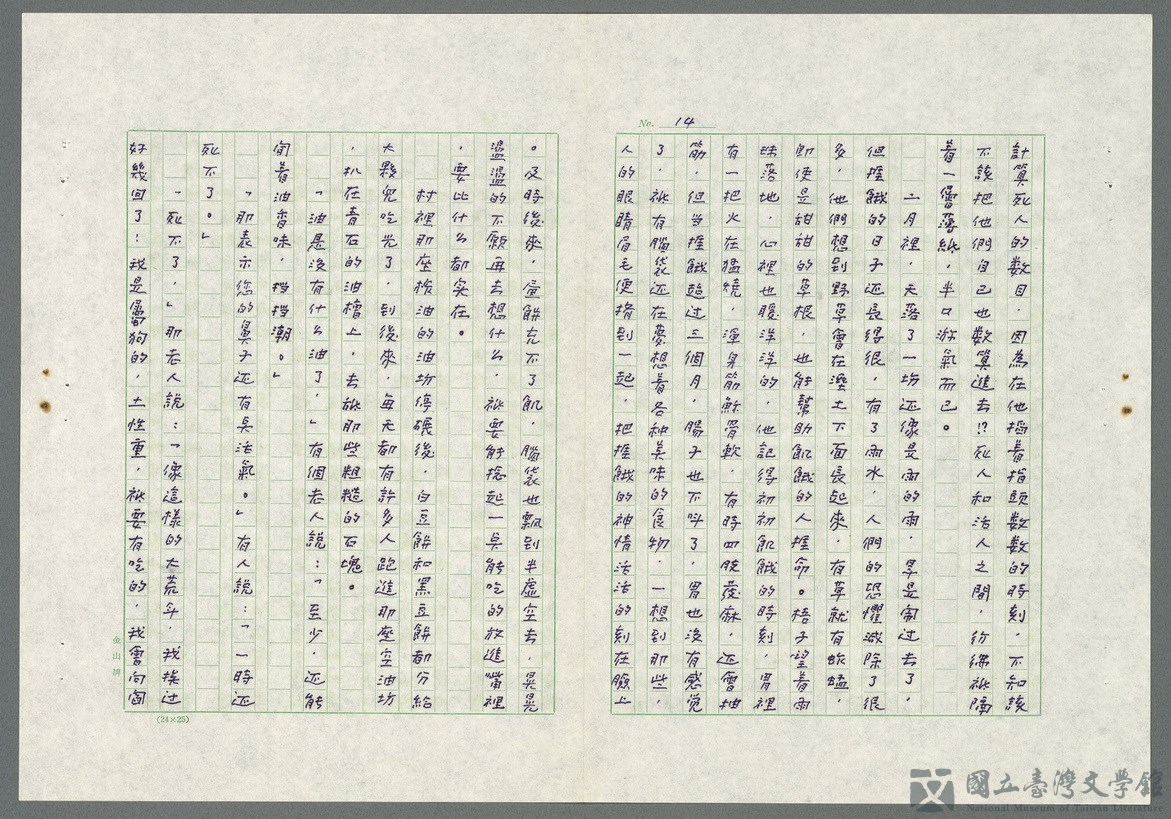 No. 14
計算死人的數目,因為在他掐着指頭數數的時刻,不知該
不該把他們自己也數算進去!?死人和活人之間,彷彿祇隔
着一層薄紙,半口游氣而已。
二月裡,天落了一場還像是雨的雨,旱是鬧过去了,
但捱餓的日子还長得很,有了雨水,人們的恐懼減除了很
多,他們想到野草會在溼土下面長起來,有草就有蚱蜢,
即使是甜甜的草根,也能幫助飢餓的人捱命。梧子望着雨
珠落地,心裡也腰洋洋的,他記得初初飢餓的時刻,胃裡
有一把火在猛燒,渾身筋酥骨軟,有時四肢發麻,还會抽
筋,但当捱餓超过三個月,腸子也不叫了,胃也沒有感覺
了,祇有腦袋还在夢想着各种美味的食物,一想到那些,
人的眼睛眉毛便擠到一起,把捱餓的神情活活的刻在臉上
。及時後來,虛餅充不了飢,腦袋也飄到半虛空去,晃晃
盪盪的不願再去想什么,祇要能捻起一臭能吃的放進嘴裡
,要比什么都实在。
村裡那座榨油的油坊停碾後,白豆餅和黑豆餅都分給
大夥兒吃光了,到後來,每天都有許多人跑進那座空油坊
,扒在青石的油槽上,去舐那些粗糙的石塊。
「油是沒有什么油了,」有個老人說:「至少,还能
闻着油香味,挡挡潮。」
「那表示您的鼻子还有臭活氣。」有人說:「一時还
死不了。」
「死不了,」那老人說:「像這樣的大荒年,我挨过
好幾回了!我是屬狗的,土性重,祇要有吃的,我會向闾
金山牌
(24×25)
國立臺灣文學館
National Museum of Taiwan Literature